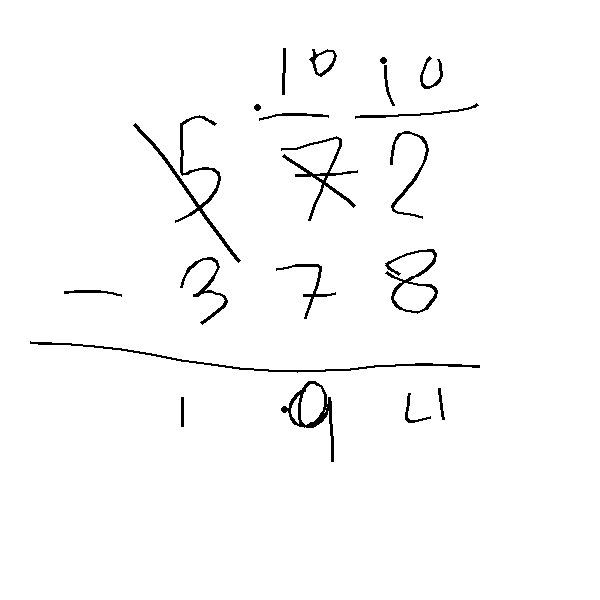 10 10
572
- 378
194